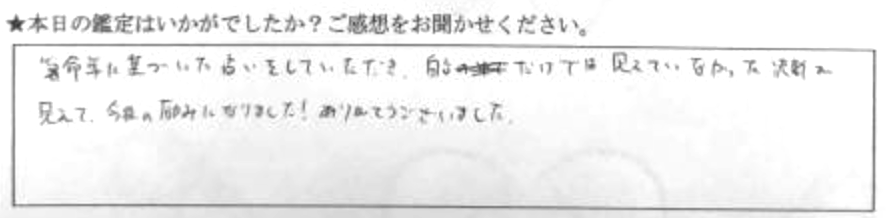 ★本日の鑑定はいかがでしたか？ご感想をお聞かせください。
算命学に基づいた占いをしていただき、自分だけでは見えていなかった決断も
見えて、今後の励みになりました！ありがとうございました。